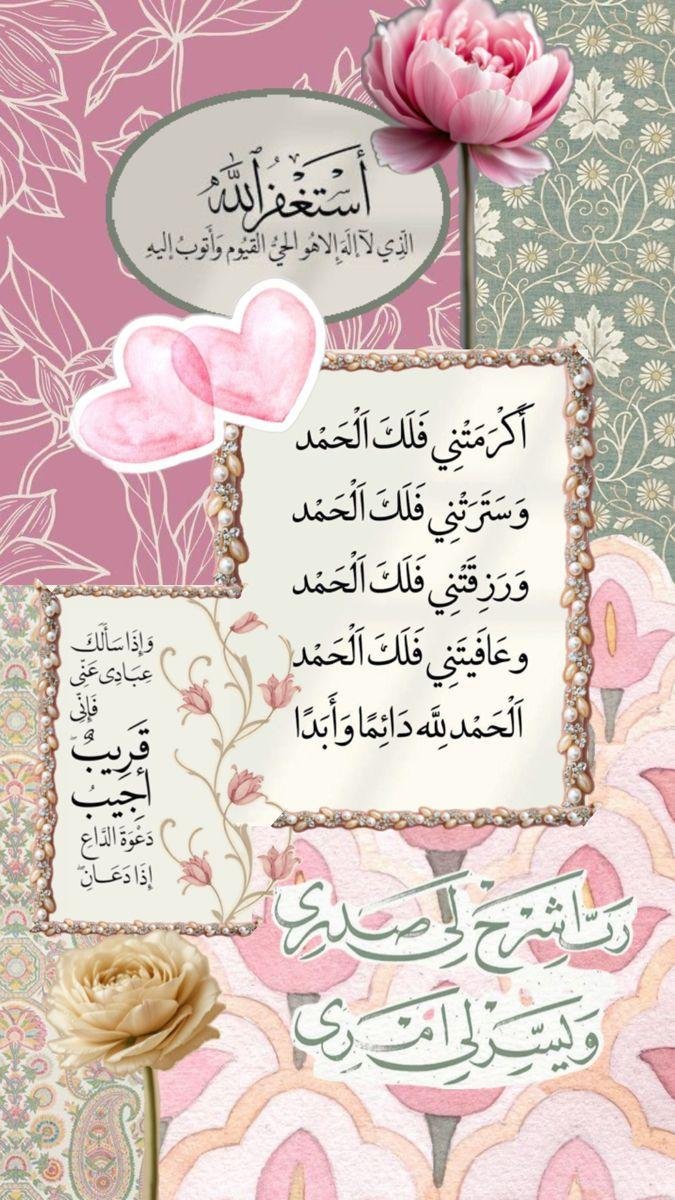 أَسْتَغْفِرُ ٱللَّهَ
الَّذِي لَآ إِلَهَ إِلا هُوَ الحَيُّ القَيُّوم وَأَتوبُ إليهِ
أَكْرَمَتْنِي فَلَكَ اَلْحَمْد
وَسَتَرَتْنِي فَلَكَ اَلْحَمْد
وَرَزِقَتْنِي فَلَكَ اَلْحَمْد
وعَافَيتَنِي فَلَكَ اَلْحَمْد
اَلْحَمْد لِلَّه دَائِمًا وَأَبَدًا
وَإِذَا سَأَلَكَ
عِبَادِى عَنِّى
فَإِنِّى
قَرِيبٌ ۖ
أُجِيبُ
دَعْوَةَ الدَّاعِ
إِذَا دَعَانِ ۖ
رَبِّ اشْرَحْ لِي صَدْرِى
وَيَسِّرْ لِي أَمْرِى